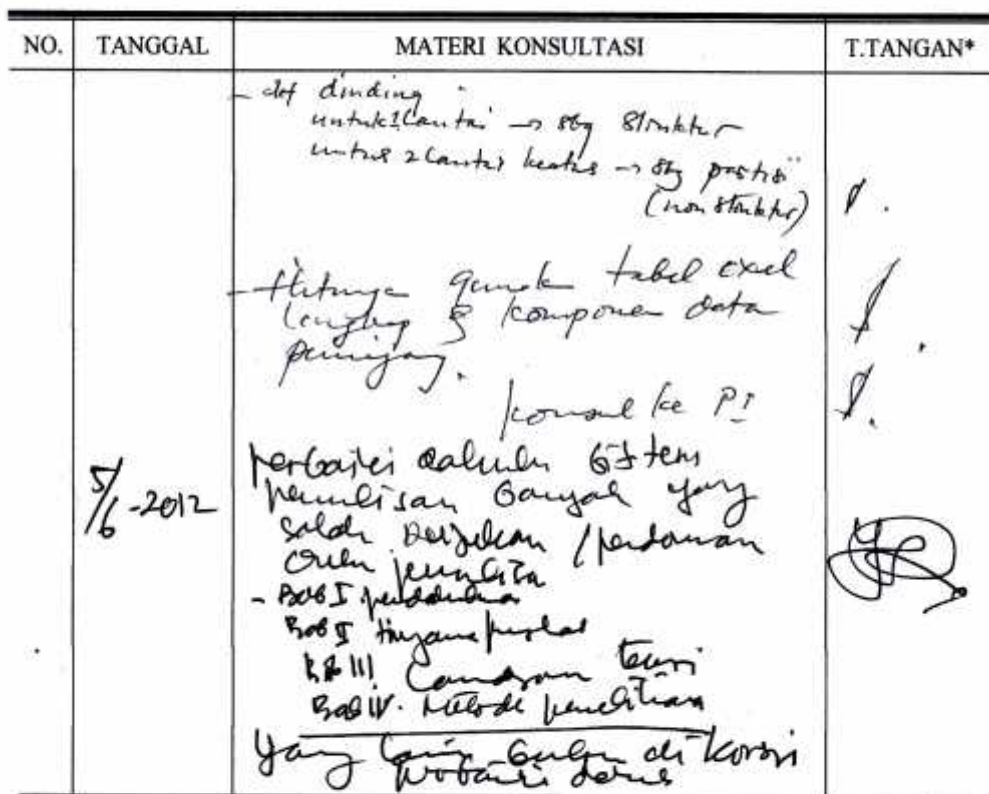 NO. TANGGAL MATERI KONSULTASI T.TANGAN*
- def dinding :
untuk 1 Lantai → sbg Struktur
untuk 2 Lantai keatas → sbg partisi
(non struktur)
- Hitungan tabel exel
lengkap & komponen data
penunjang.
konsul ke PI
5/6-2012 perbaiki dahulu sistem
penulisan banyak yang
salah
- Bab I pendahuluan
Bab II tinjauan pustaka
Bab III Landasan teori
Bab IV. Metode penelitian
yang lain belum di korsi